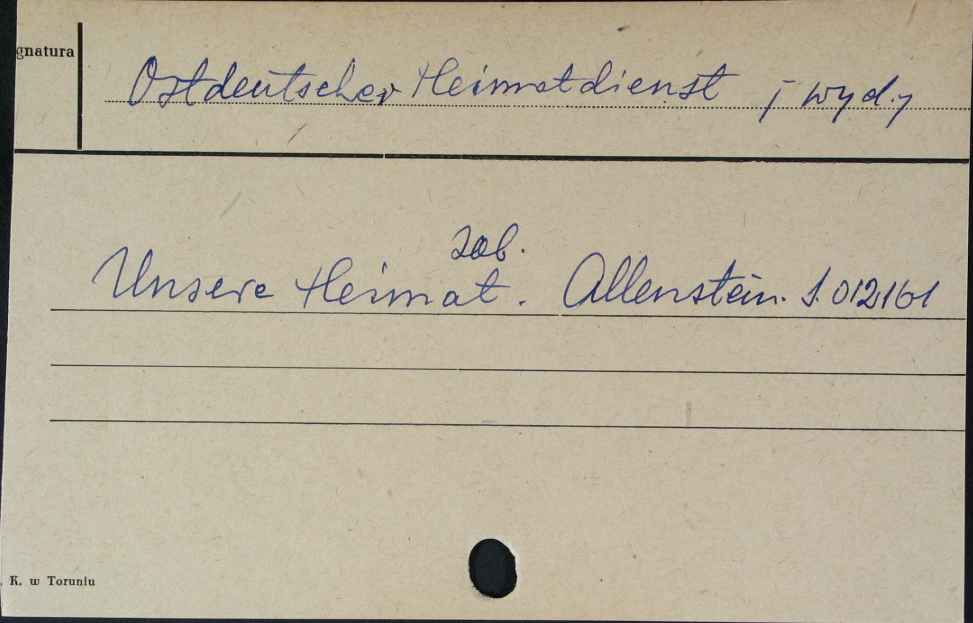 gnatura
Ostdeutscher Heimatdienst [wyd.]
zob.
Unsere Heimat. Allenstein. S.012161
. K. w Toruniu